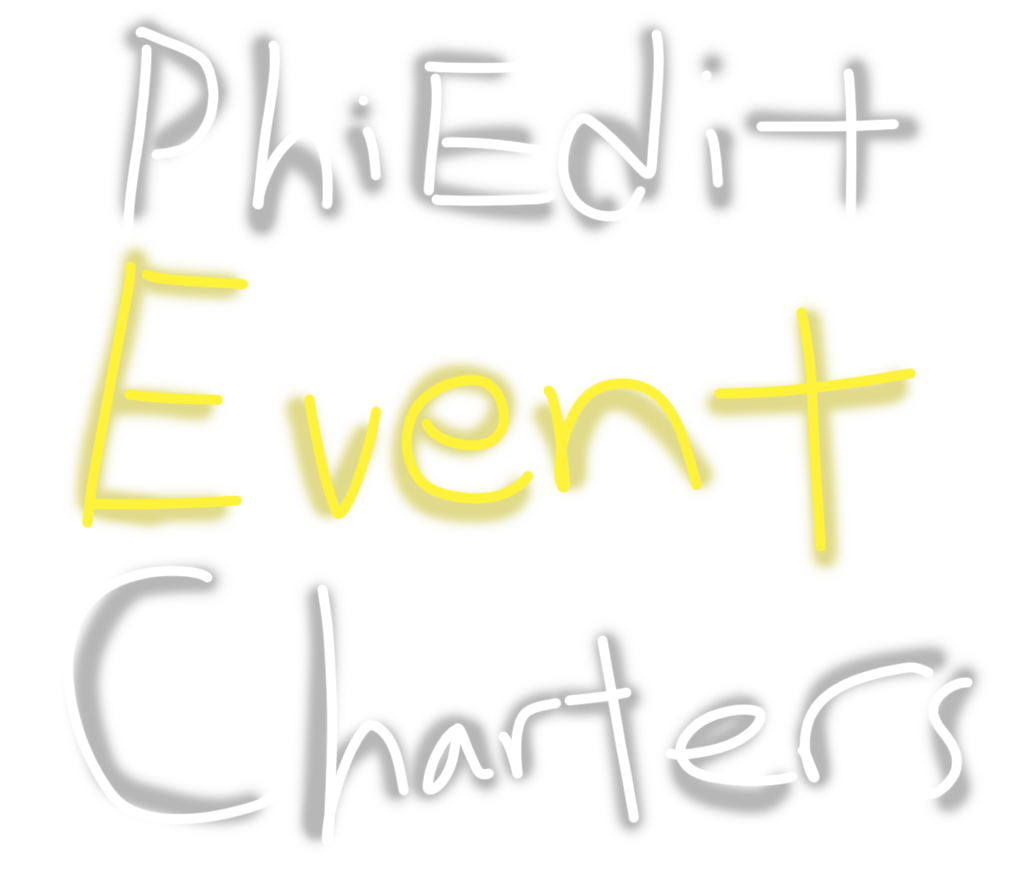 PhiEdit
Event
Charters